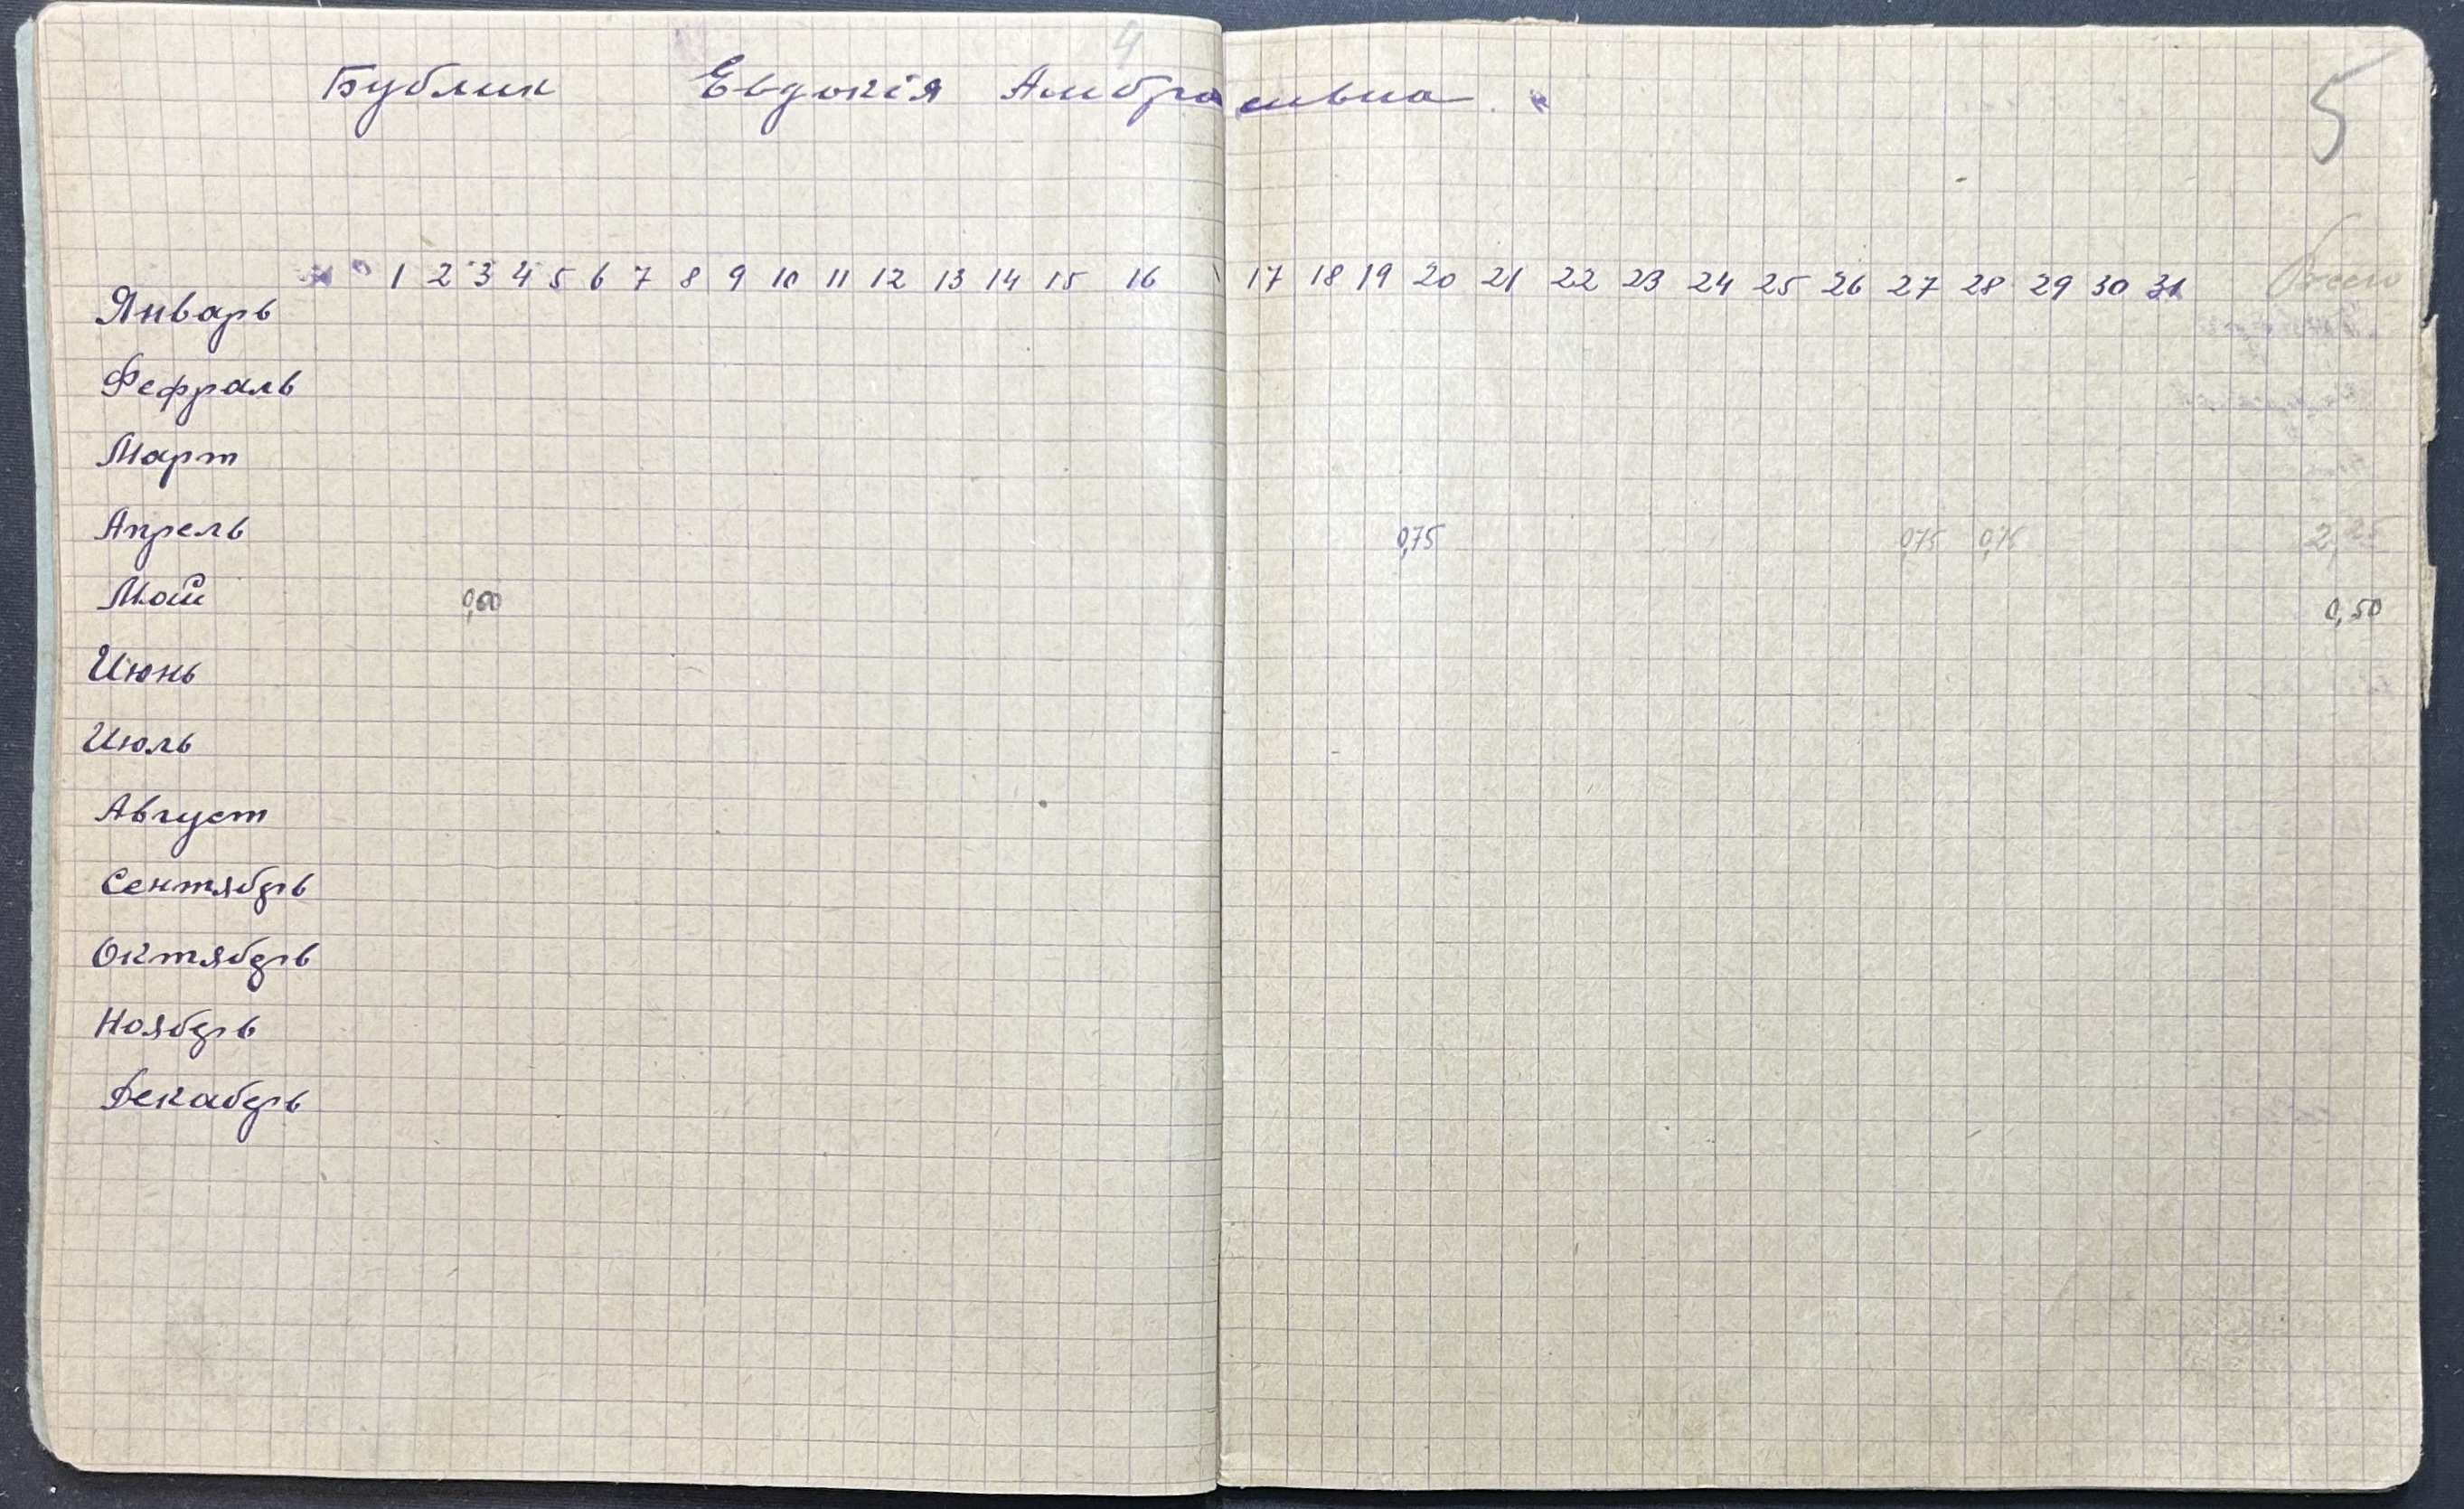 4
5
Бублик Евдокія Амбросивна
1 2 3 4 5 6 7 8 9 10 11 12 13 14 15 16 17 18 19 20 21 22 23 24 25 26 27 28 29 30 31 Всего
Январь
Фефраль
Март
Апрель 0,75 0,75 0,75 2,25
Май 0,50
Июнь
Июль
Август
Сентябрь
Октябрь
Ноябрь
Декабрь